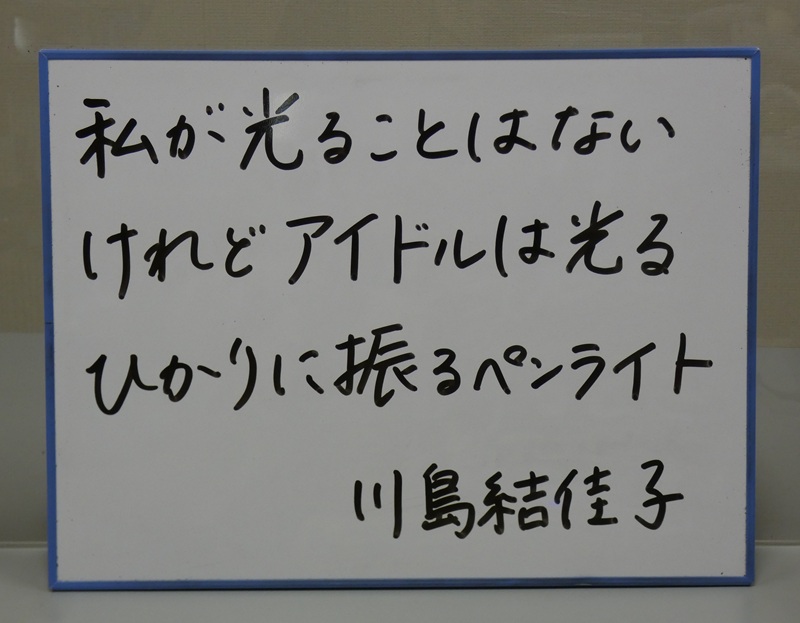 私が光ることはない
けれどアイドルは光る
ひかりに振るペンライト
川島結佳子